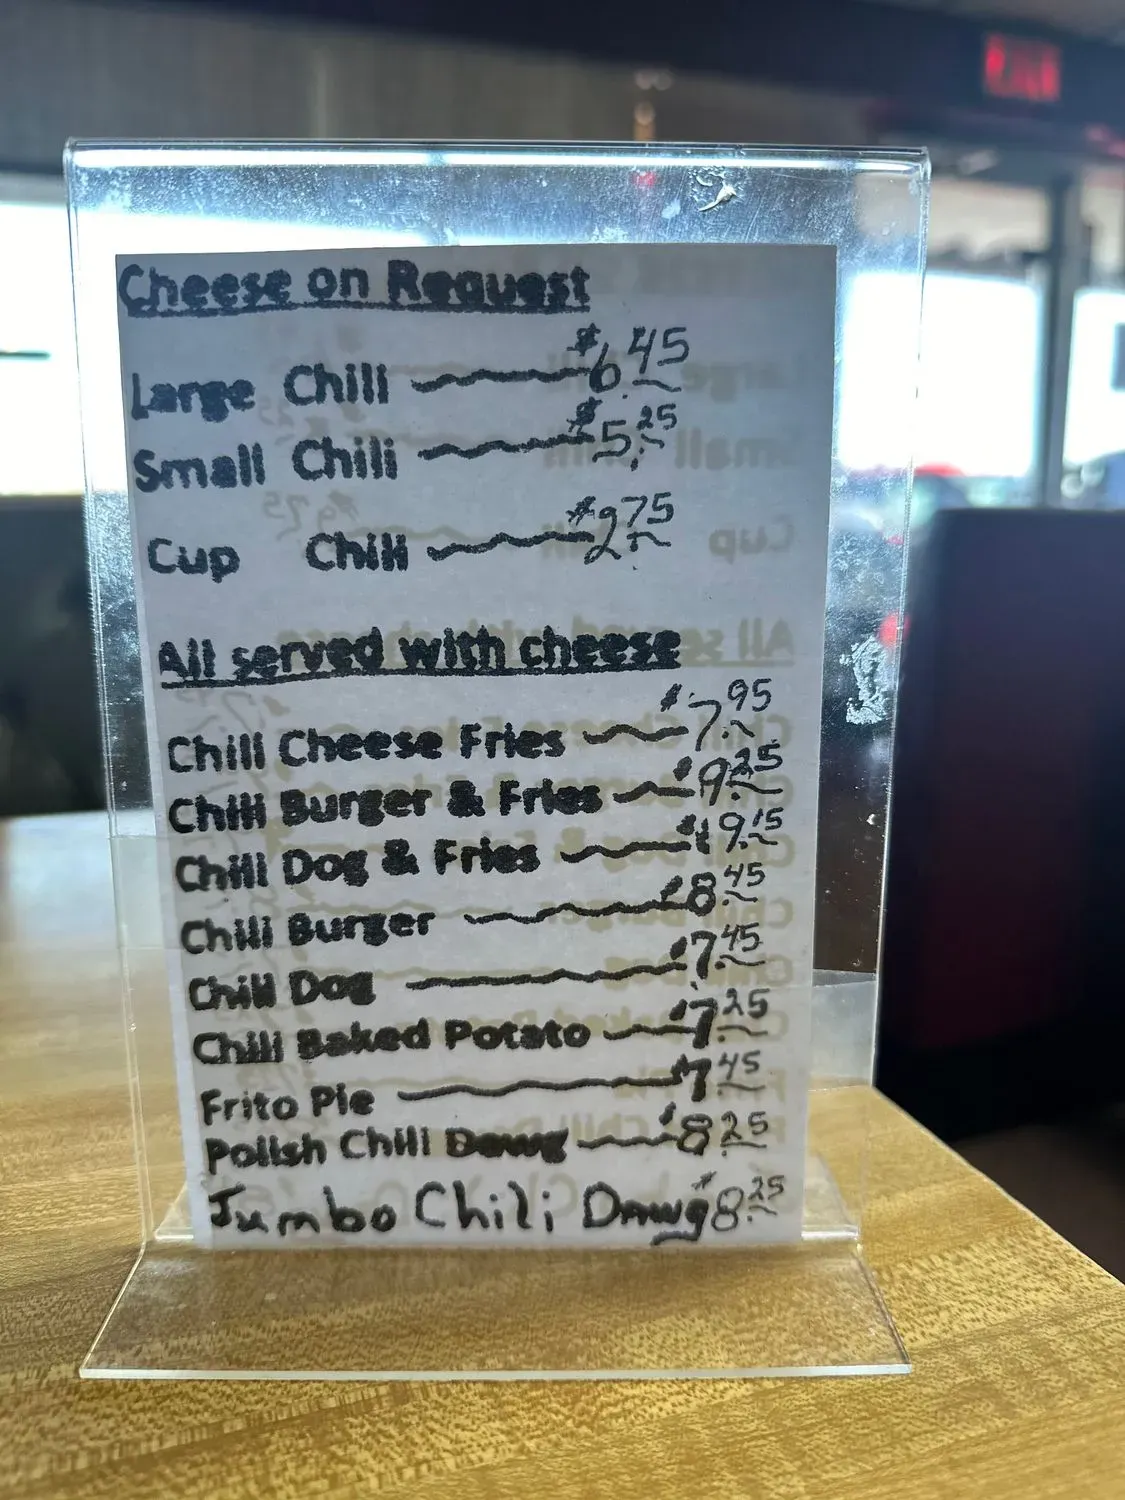 Cheese on Request
Large Chili $6.45
Small Chili $5.25
Cup Chili $2.75
All served with cheese
Chili Cheese Fries $7.95
Chili Burger & Fries $9.25
Chili Dog & Fries $9.15
Chili Burger $8.45
Chili Dog $7.45
Chili Baked Potato $7.25
Frito Pie $7.45
Polish Chili Dawg $8.25
Jumbo Chili Dawg $8.25